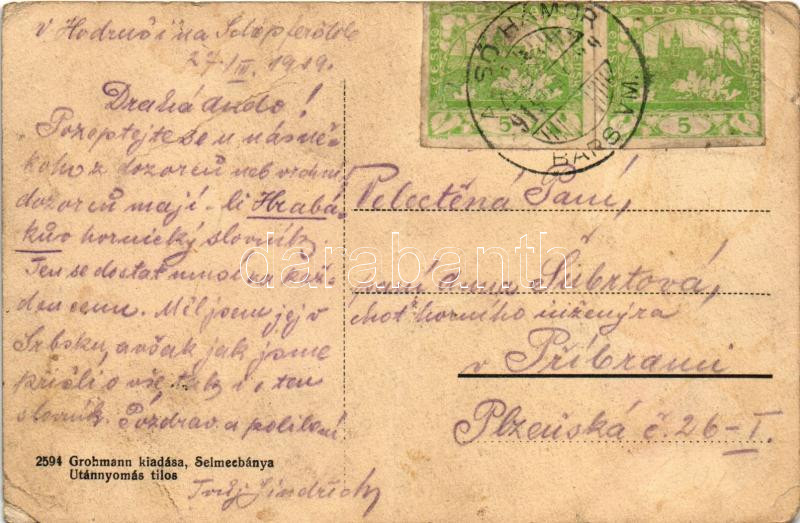 V Hodruši na Schöpferštole
27./III. 1919.
Drahá Ando!
Pozeptejte se u nás ně-
koho z dozorců neb vrchn.
dozorců mají-li Hrabá-
kův hornický slovník.
Ten se dostat musí za kaž-
dou cenu. Měl jsem jej v
Srbsku, avšak jak jsme
přišli o vše tak i o ten
slovník. Pozdrav a políbení
Tvůj Jindřich
2594 Grohmann kiadása, Selmecbánya
Utánnyomás tilos
POŠTA
5
POŠTA
5
ALSÓHÁMOR
BARS VM.
Velectěná Paní,
paní Šubrtová,
choť horního inženýra
v Příbrami
Plzeňská č. 26-I.
darabanth